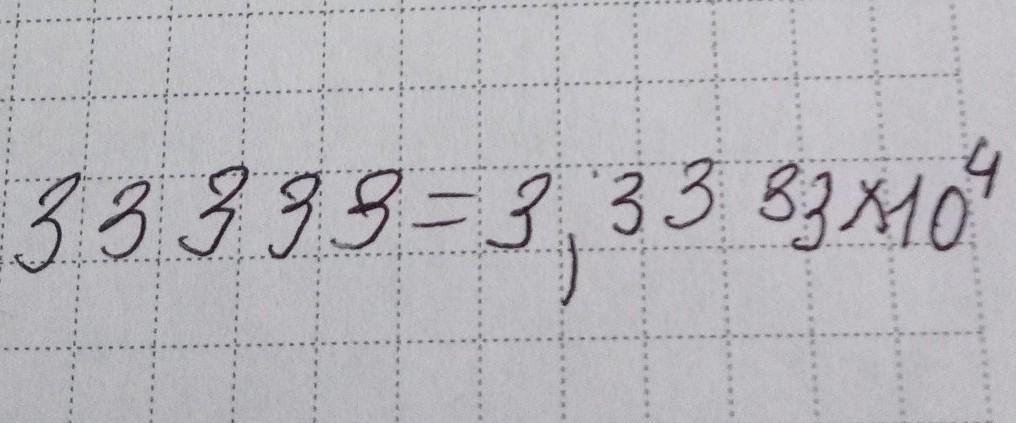 33333=3,3333×10⁴